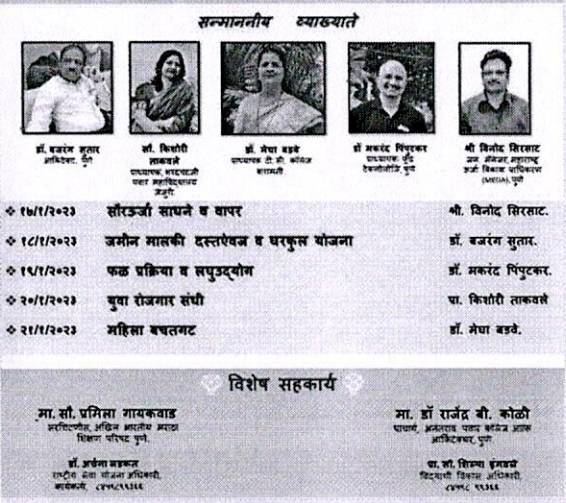 सन्माननीय व्याख्याते
डॉ. बजरंग सुतार
आर्किटेक्ट, पुणे
सौ. किशोरी
ताकवले
प्राध्यापक, शरदचंद्रजी
पवार महाविद्यालय
जेजुरी
डॉ. मेघा बडवे
प्राध्यापक टी. सी. कॉलेज
बारामती
डॉ मकरंद पिंपुटकर
प्राध्यापक, फूड
टेक्नोलोजि, पुणे
श्री विनोद सिरसाट
महाराष्ट्र
ऊर्जा विकास प्राधिकरण
(MEDA), पुणे
❖ १७/१/२०२३ सौरऊर्जा साधने व वापर श्री. विनोद सिरसाट.
❖ १८/१/२०२३ जमीन मालकी दस्तऐवज व घरकुल योजना डॉ. बजरंग सुतार.
❖ १९/१/२०२३ फळ प्रक्रिया व लघुउद्योग डॉ. मकरंद पिंपुटकर.
❖ २०/१/२०२३ युवा रोजगार संधी प्रा. किशोरी ताकवले
❖ २१/१/२०२३ महिला बचतगट डॉ. मेघा बडवे.
विशेष सहकार्य
मा. सौ. प्रमिला गायकवाड
सरचिटणीस, अखिल भारतीय मराठा
शिक्षण परिषद पुणे.
मा. डॉ राजेंद्र बी. कोळी
प्राचार्य, अनंतराव पवार कॉलेज ऑफ
आर्किटेक्चर, पुणे
डॉ. अर्चना
राष्ट्रीय सेवा योजना अधिकारी,
प्रा. सौ. शिल्पा इंगवले
विद्यार्थी विकास अधिकारी,